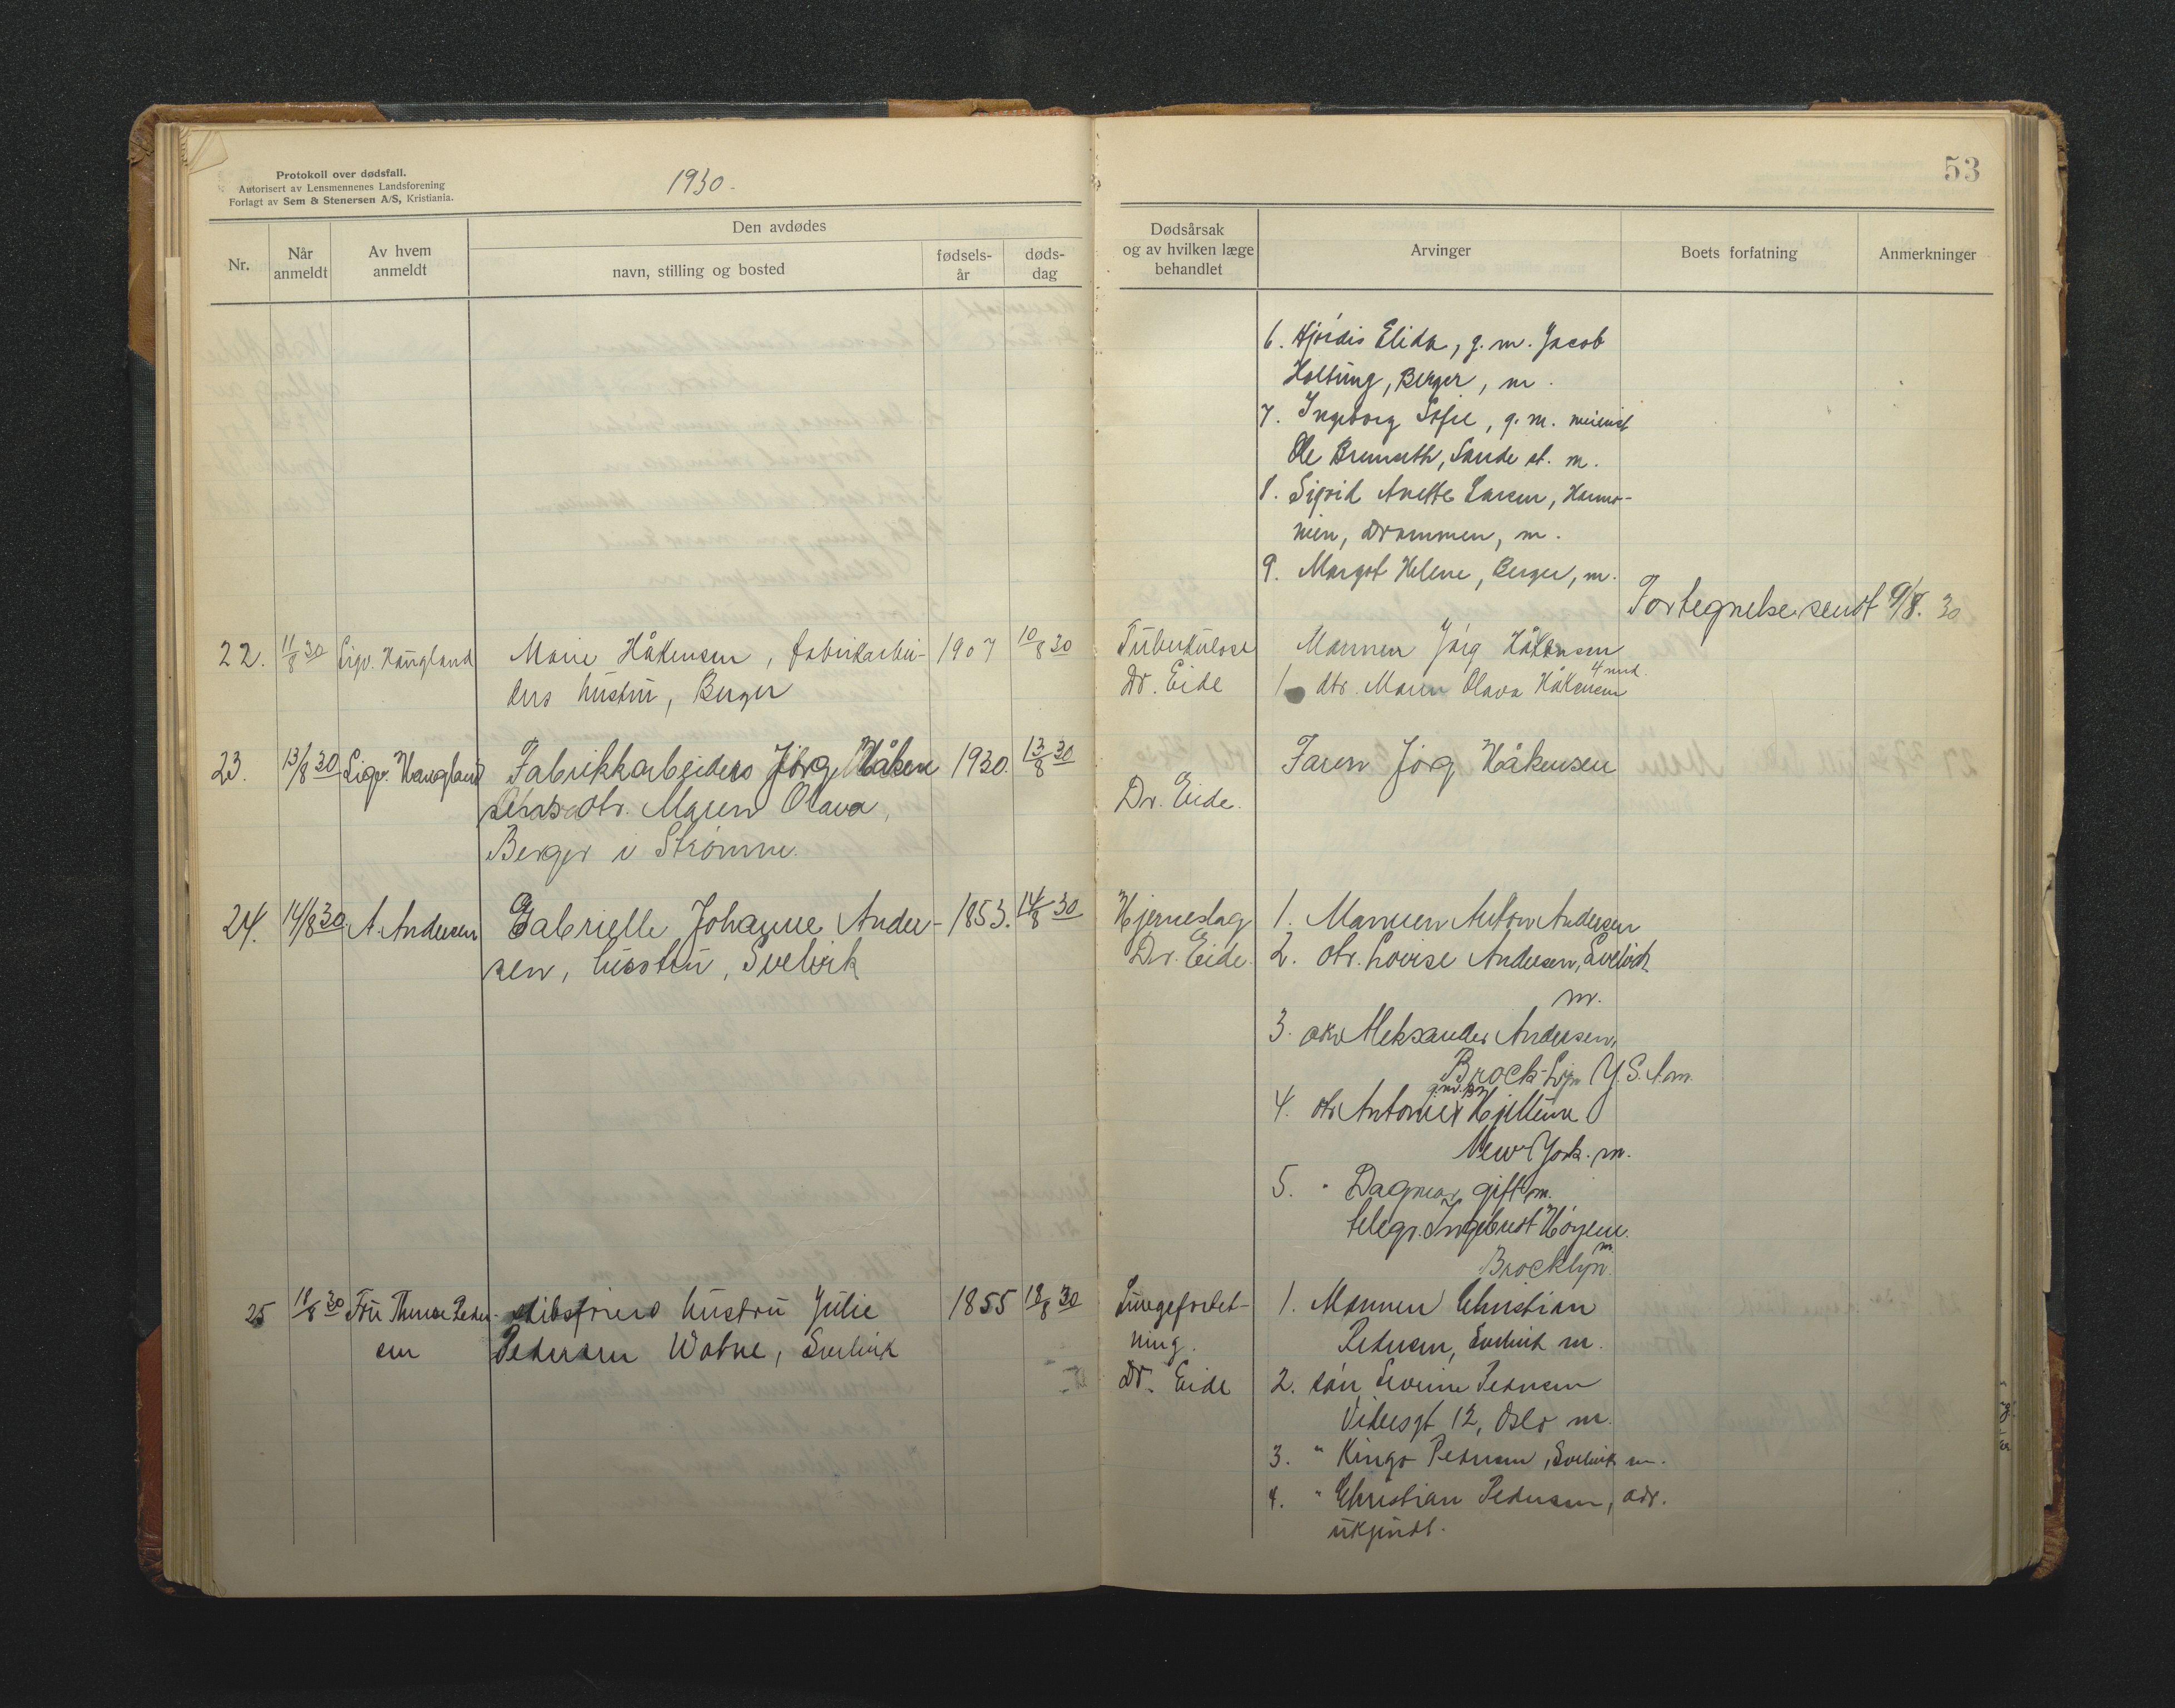 Protokoll over dødsfall.
Autorisert av Lensmennenes Landsforening
Forlagt av Sem & Stenersen A/S, Kristiania.
1930.
Nr.
Når anmeldt
Av hvem anmeldt
Den avdødes
navn, stilling og bosted
fødsels-år
døds-dag
53
Dødsårsak og av hvilken læge behandlet
Arvinger
Boets forfatning
Anmerkninger
6. Hjørdis Elida, g. m. Jacob
Holtung, Berger, m.
7. Ingeborg Sofie, g. m. meierist
Ole Brenseth, Sande st. m.
8. Sigrid Anette Larsen, Harmo-
nien, Drammen, m.
9. Margot Helene, Berger, m.
Fortegnelse sendt 9/8. 30
22. 11/8 30 Sigv. Haugland Marie Håkensen, fabrikarbei- 1907 10/8 30 Tuberkulose Mannen Jörg Håkensen
ders hustru, Berger Dr. Eide 1 dtr. Maren Olava Håkensen 4 mnd.
23. 13/8 30 Sigv. Haugland Fabrikkarbeiders Jörg Håken 1930. 13/8 30 Faren Jörg Håkensen
sens dtr. Maren Olava, Dr. Eide.
Berger i Strømm.
24. 14/8 30. A. Andersen Gabrielle Johanne Ander- 1853. 14/8 30 Hjerneslag 1. Mannen Anton Andersen
sen, hustru, Svelvik Dr. Eide. 2. dtr. Lovise Andersen, Svelvik
m.
3. Aleksander Andersen,
Brock-Lyn U.S. Am.
4. dtr Antonie g.m. Hjellum
New York. m.
5. " Dagmar gift m.
telegr. Ingebret Höyem.
Brocklyn m.
25 18/8 30 Fru Therese Peder- skibsförers hustru Julie 1855 18/8 30 Lungefortet- 1. Mannen Christian
sen Pedersen Wobne, Svelvik ning. Pedersen, Svelvik m.
Dr. Eide 2. sön Severin Pedersen
Vidersgt 12, Oslo m.
3. " Kingo Pedersen, Svelvik m.
4. " Christian Pedersen, adr.
ukjendt.